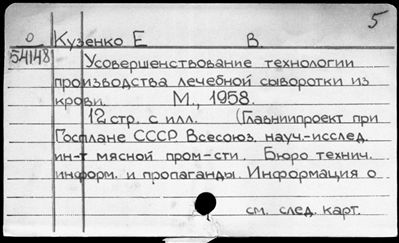 5
О Кузенко Е В.
54148 Усовершенствование технологии
производства лечебной сыворотки из
крови. М., 1958.
12 стр. с илл. (Главниипроект при
Госплане СССР. Всесоюз. науч.-исслед.
ин-т мясной пром-сти. Бюро технич.
информ. и пропаганды. Информация о
см. след. карт.